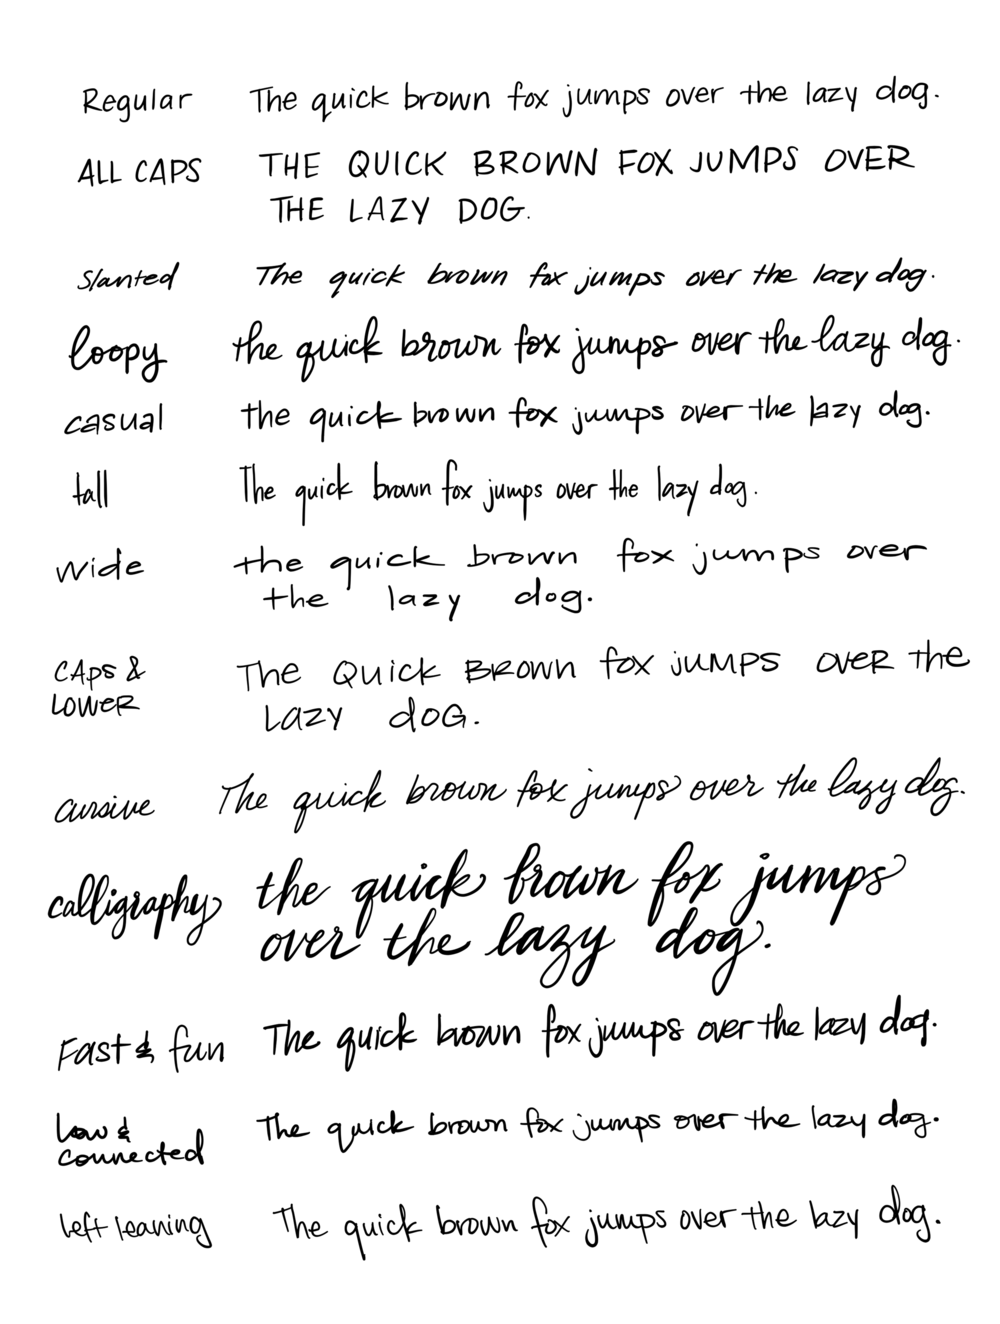 Regular The quick brown fox jumps over the lazy dog.
ALL CAPS THE QUICK BROWN FOX JUMPS OVER
THE LAZY DOG.
Slanted The quick brown fox jumps over the lazy dog.
loopy the quick brown fox jumps over the lazy dog.
casual the quick brown fox jumps over the lazy dog.
tall The quick brown fox jumps over the lazy dog.
wide the quick brown fox jumps over
the lazy dog.
CAps & THe QUiCK BROWN fox jUMPS OVeR the
LOWeR LAZY dOG.
cursive The quick brown fox jumps over the lazy dog.
calligraphy the quick brown fox jumps
over the lazy dog.
Fast & fun The quick brown fox jumps over the lazy dog.
Low & The quick brown fox jumps over the lazy dog.
connected
left leaning The quick brown fox jumps over the lazy dog.